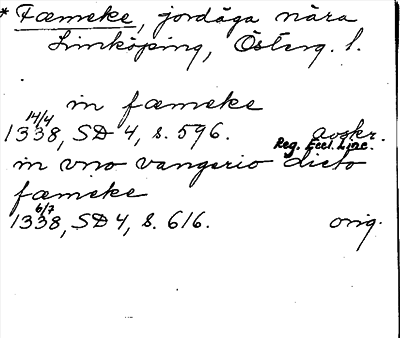 * Fæmeke, jordäga nära
Linköping, Österg. l.
in fæmeke
14/4
1338, SD 4, s. 596. avskr.
Reg. Eccl. Linc.
in vno vangerio dicto
fæmeke
6/7
1338, SD 4, s. 616. orig.